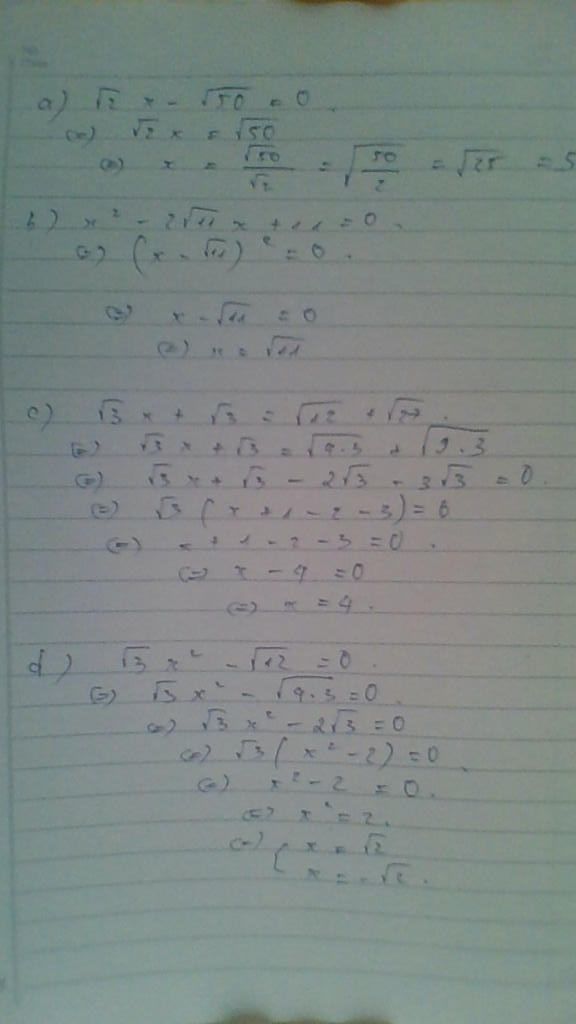 a) √2 x - √50 = 0.
(=) √2 x = √50
(=) x = √50/√2 = √(50/2) = √25 = 5
b) x² - 2√11 x + 11 = 0.
(=) (x - √11)² = 0.
(=) x - √11 = 0
(=) x = √11
c) √3 x + √3 = √12 + √27.
(=) √3 x + √3 = √4.3 + √9.3
(=) √3 x + √3 - 2√3 - 3√3 = 0.
(=) √3 (x + 1 - 2 - 3) = 0
(=) x + 1 - 2 - 3 = 0.
(=) x - 4 = 0
(=) x = 4.
d) √3 x² - √12 = 0.
(=) √3 x² - √4.3 = 0.
(=) √3 x² - 2√3 = 0
(=) √3 (x² - 2) = 0
(=) x² - 2 = 0.
(=) x² = 2.
(=) { x = √2
x = -√2.